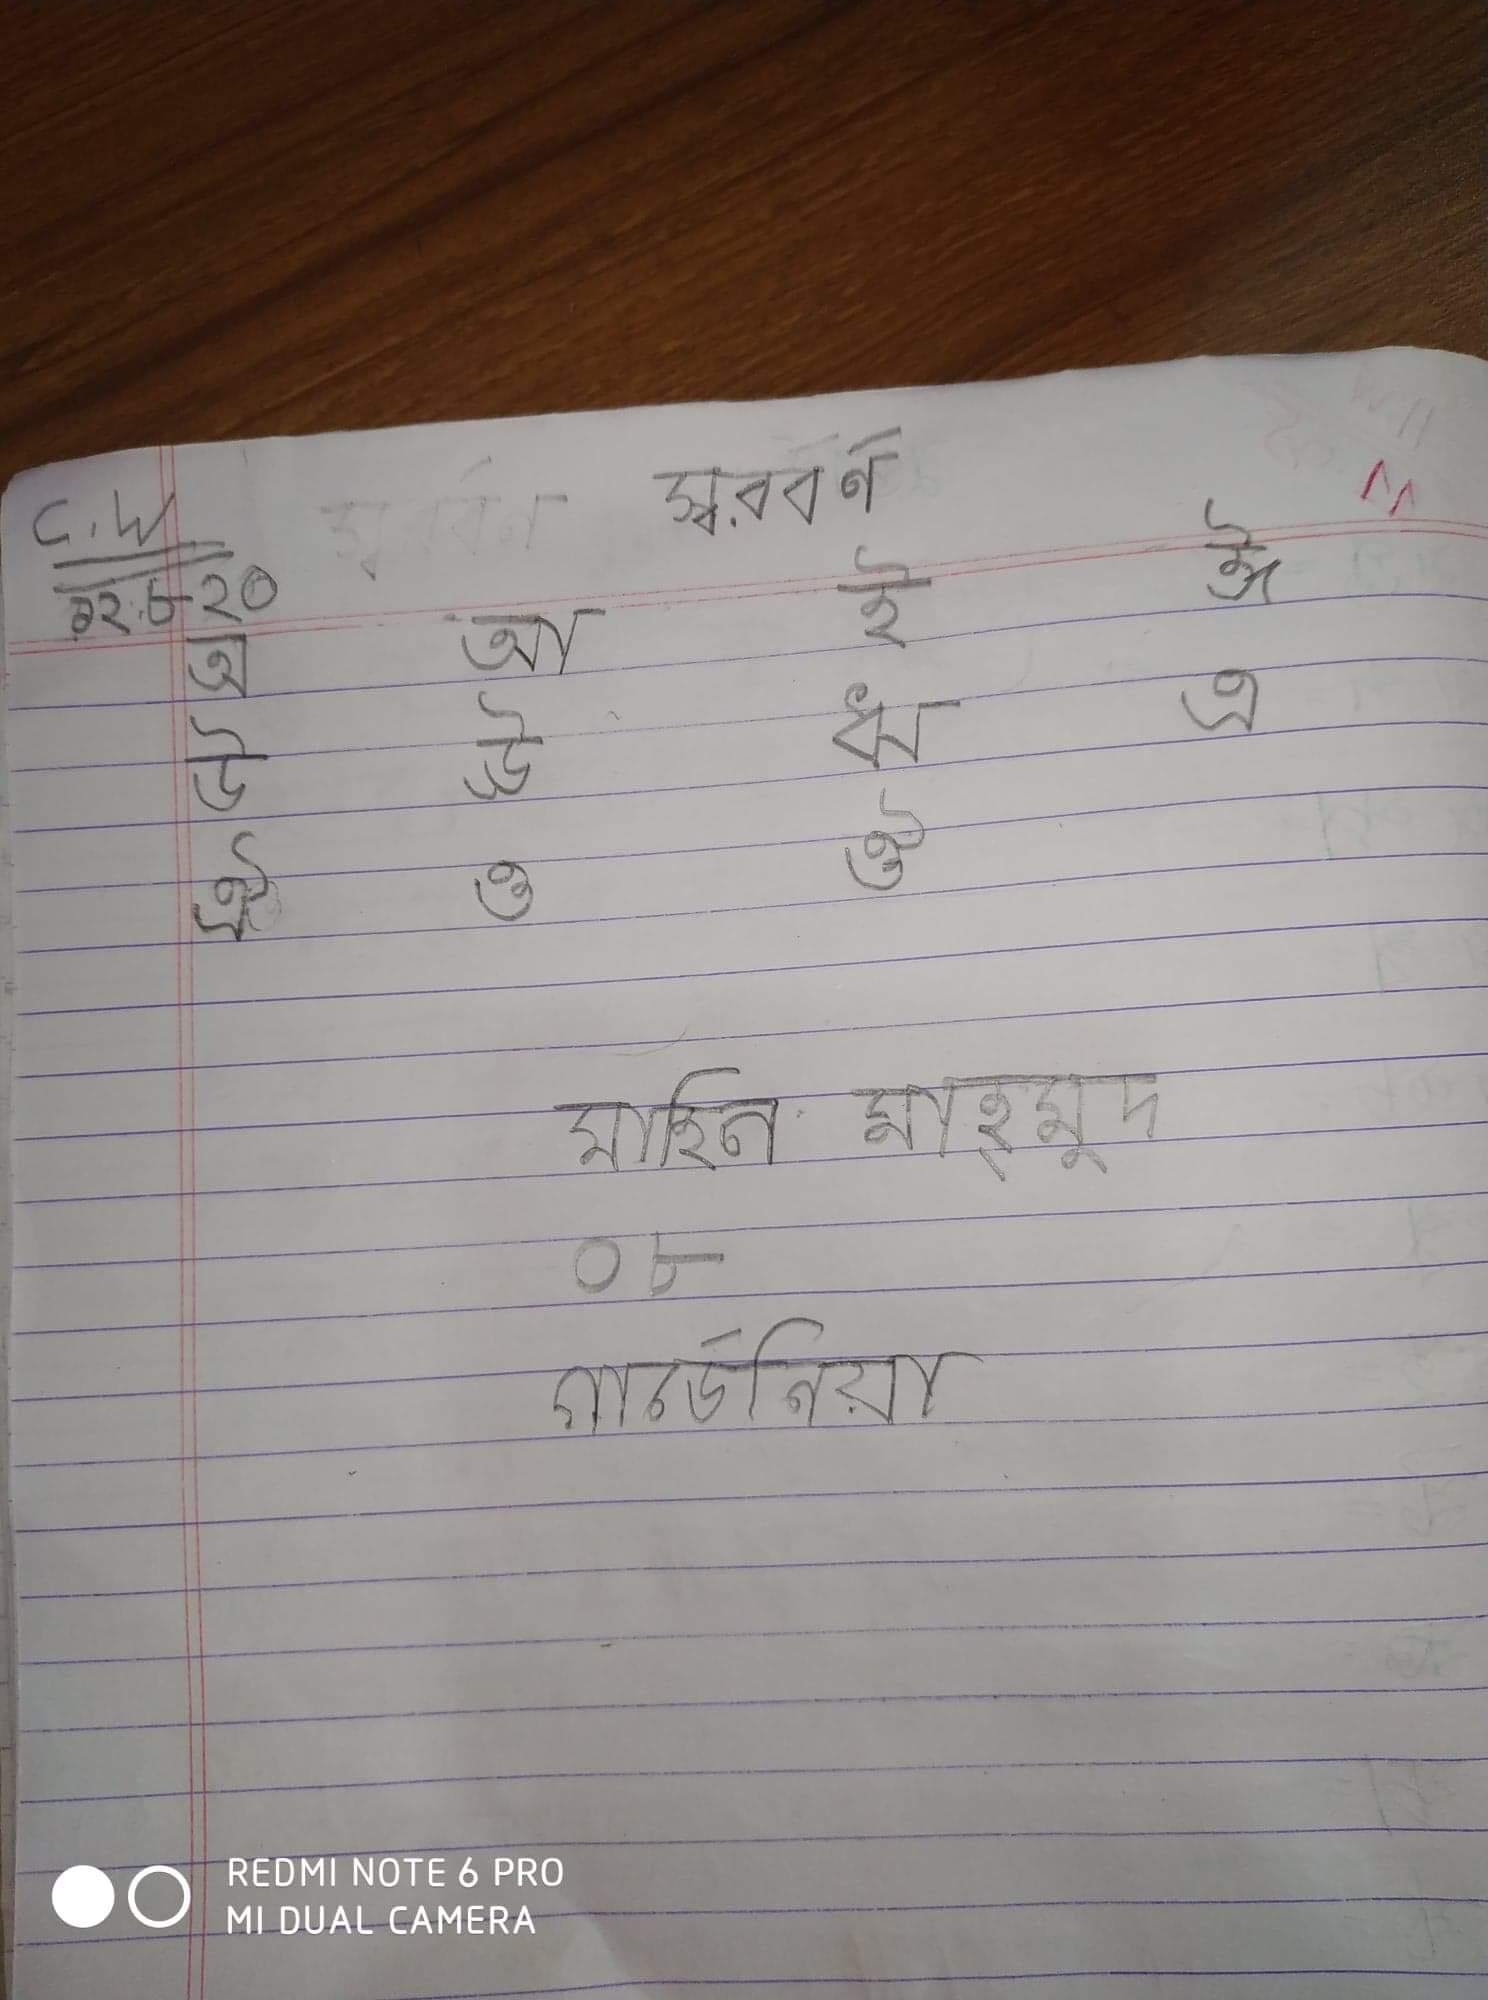 C.W স্বরবর্ণ
২.৮.২০
অ আ ই ঈ
উ ঊ ঋ এ
ঐ ও ঔ
মাহিন মাহমুদ
০৮
গার্ডেনিয়া
REDMI NOTE 6 PRO
MI DUAL CAMERA